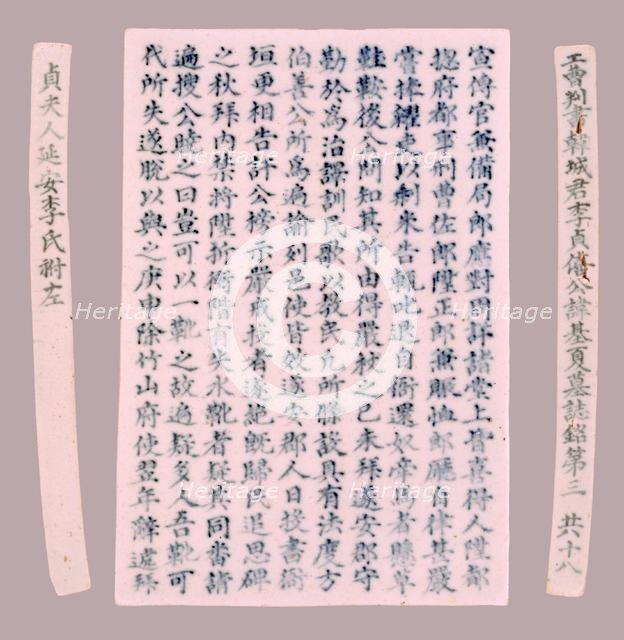 工曹判書韓城君李貞僖公諱基夏墓誌銘第三 共十八
宣傳官兼備局郎應對周詳諸堂上胥喜得人陞都
摠府都事刑曹佐郎陞正郎兼賑恤郎廳省律甚嚴
嘗捧糶吏以剩米告輒自衙還奴者懸草
鞋鞍後公問知其所由得嚴杖之己未拜遂安郡守
勤於為治譯訓民歌以敎民凡所條設具有法度方
伯善公所為遍諭列邑使皆效遂安郡人日投書衙
垣更相告訐公榜示嚴戒投者遂絶旣歸民追思碑
之秋拜內禁將陞折衝時有失水靴者疑與同番請
遍搜公曉之曰豈可以一靴之故遍疑多人吾靴可
代所失遂脫以與之庚申除竹山府使翌年辭遞拜
貞夫人延安李氏祔左
Heritage
Heritage
Heritage
Heritage
Heritage
Heritage